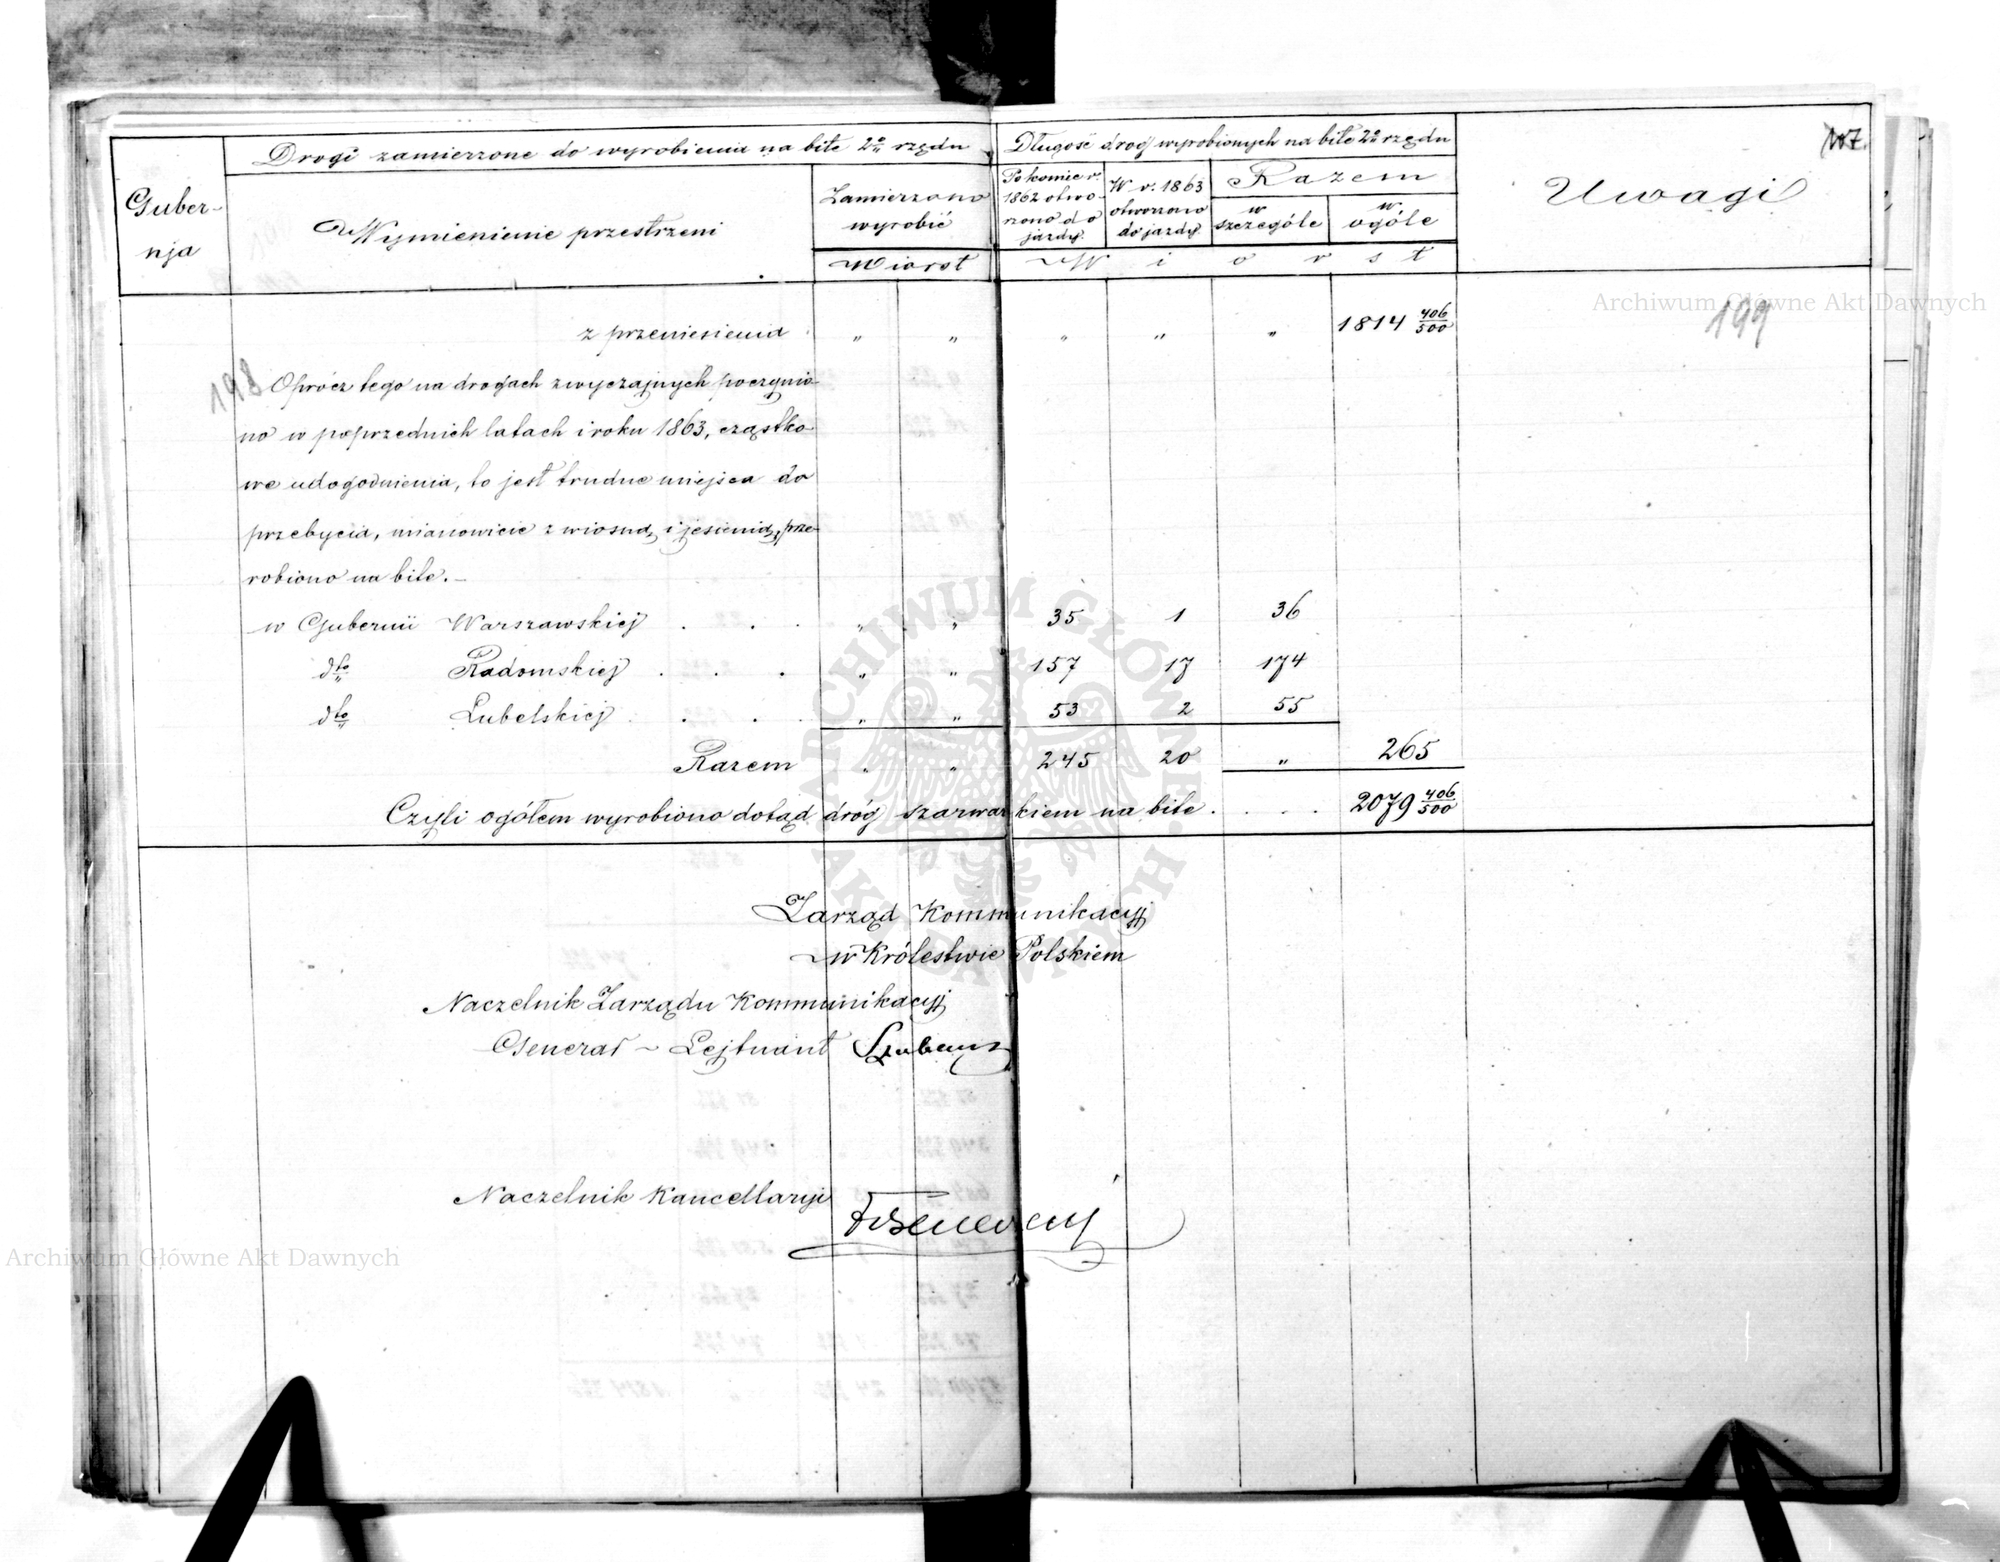 Drogi zamierzone do wyrobienia na bite 2º rzędu
Długość dróg wyrobionych na bite 2º rzędu
Guber-
nja
Wymienienie przestrzeni
Zamierzono
wyrobić
Wiorst
Po koniec r.
1862 otwo-
rzono do
jazdy.
W r. 1863
otworzono
do jazdy.
Razem
w
szczególe
w
ogóle
W i o r s t
Uwagi
z przeniesienia " " " " " 1814 406/500
199
198
Oprócz tego na drogach zwyczajnych poczynio-
no w poprzednich latach i roku 1863, cząstko-
we udogodnienia, to jest trudne miejsca do
przebycia, mianowicie z wiosną i jesienią, prze-
robiono na bite.–
w Gubernii Warszawskiej . . . " " 35 1 36
dto Radomskiej . . . " " 157 17 174
dto Lubelskiej . . . " " 53 2 55
Razem " " 245 20 " 265
Czyli ogółem wyrobiono dotąd dróg szarwarkiem na bite . . . . 2079 406/500
Zarząd Kommunikacyj
w Królestwie Polskiem
Naczelnik Zarządu Kommunikacyj
Generał - Lejtnant Szubersz
Naczelnik Kancellaryi
Archiwum Główne Akt Dawnych
Archiwum Główne Akt Dawnych
ARCHIWUM GŁÓWNE AKT DAWNYCH